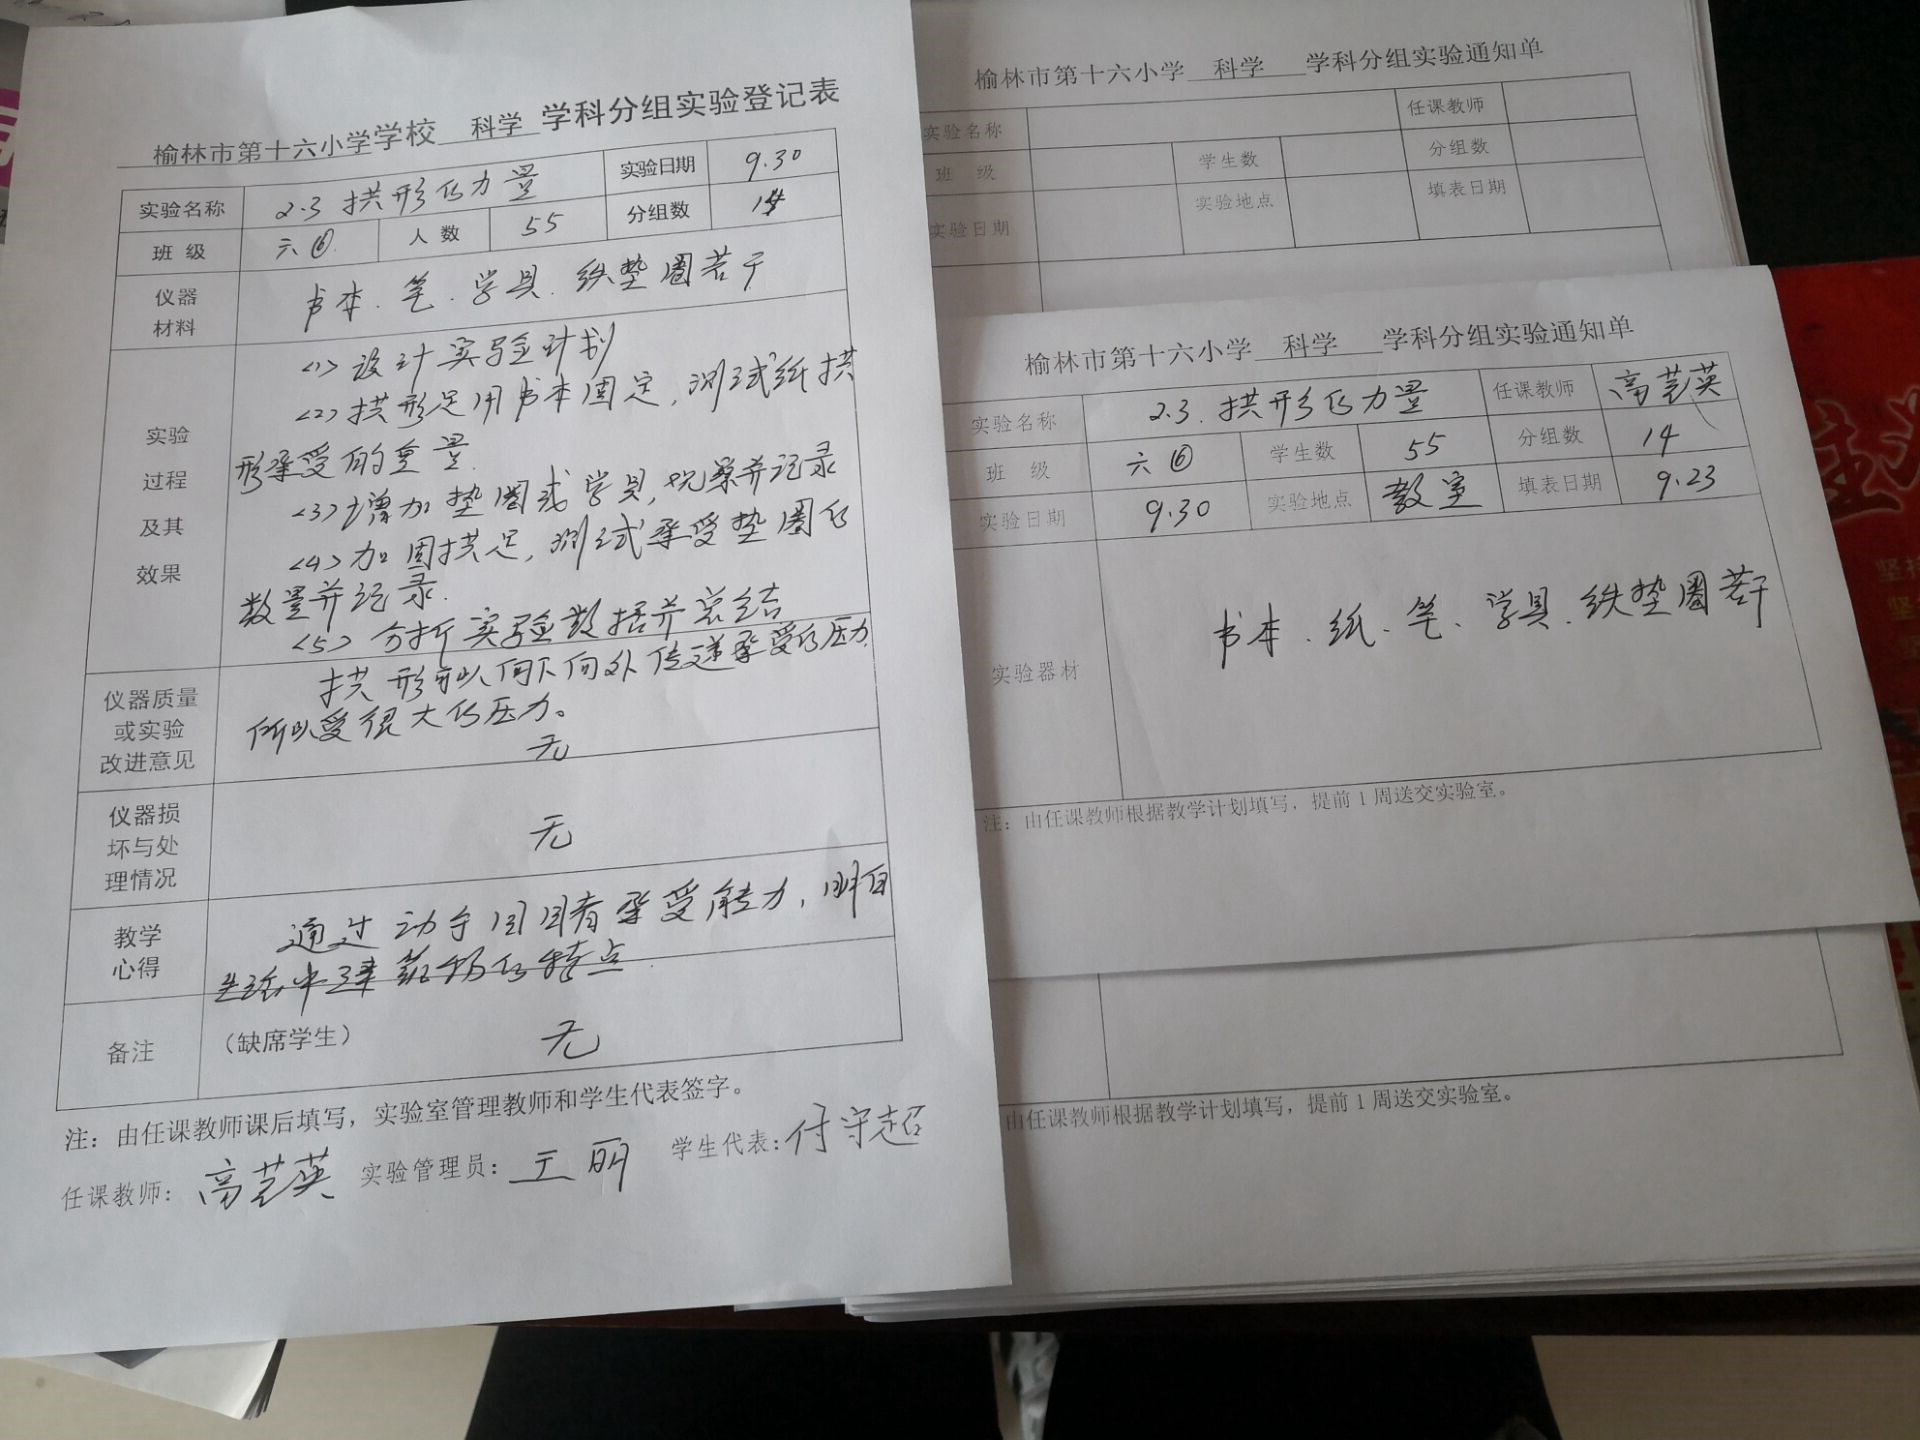 榆林市第十六小学学校 科学 学科分组实验登记表
实验名称 2.3 拱形的力量 实验日期 9.30
班级 六⑥ 人数 55 分组数 14
仪器材料 书本、笔、学具、铁垫圈若干
实验过程及其效果
<1> 设计实验计划
<2> 拱形足用书本固定,测试纸拱
形承受的重量.
<3> 增加垫圈或学具,观察并记录
<4> 加固拱足,测试承受垫圈的
数量并记录.
<5> 分析实验数据并总结
拱形可以向下向外传递承受的压力
所以受很大的压力。
仪器质量或实验改进意见 无
仪器损坏与处理情况 无
教学心得
通过动手 者承受能力,明白
生活中 建筑物的特点
备注 (缺席学生) 无
注:由任课教师课后填写,实验室管理教师和学生代表签字。
任课教师: 高芝英 实验管理员: 王明 学生代表: 付守超
榆林市第十六小学 科学 学科分组实验通知单
实验名称 任课教师
班 级 学生数 分组数
实验日期 实验地点 填表日期
榆林市第十六小学 科学 学科分组实验通知单
实验名称 2.3.拱形的力量 任课教师 高芝英
班 级 六⑥ 学生数 55 分组数 14
实验日期 9.30 实验地点 教室 填表日期 9.23
实验器材 书本、纸、笔、学具、铁垫圈若干
注:由任课教师根据教学计划填写,提前1周送交实验室。
由任课教师根据教学计划填写,提前1周送交实验室。
坚持
坚